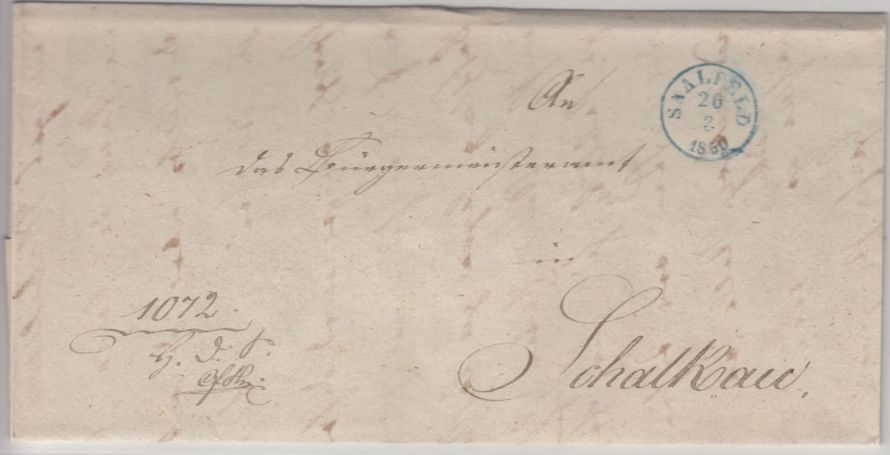 SAALFELD
26
2
1850
An
das Bürgermeisteramt
in
Schalkau.
1072.
H. D. S.